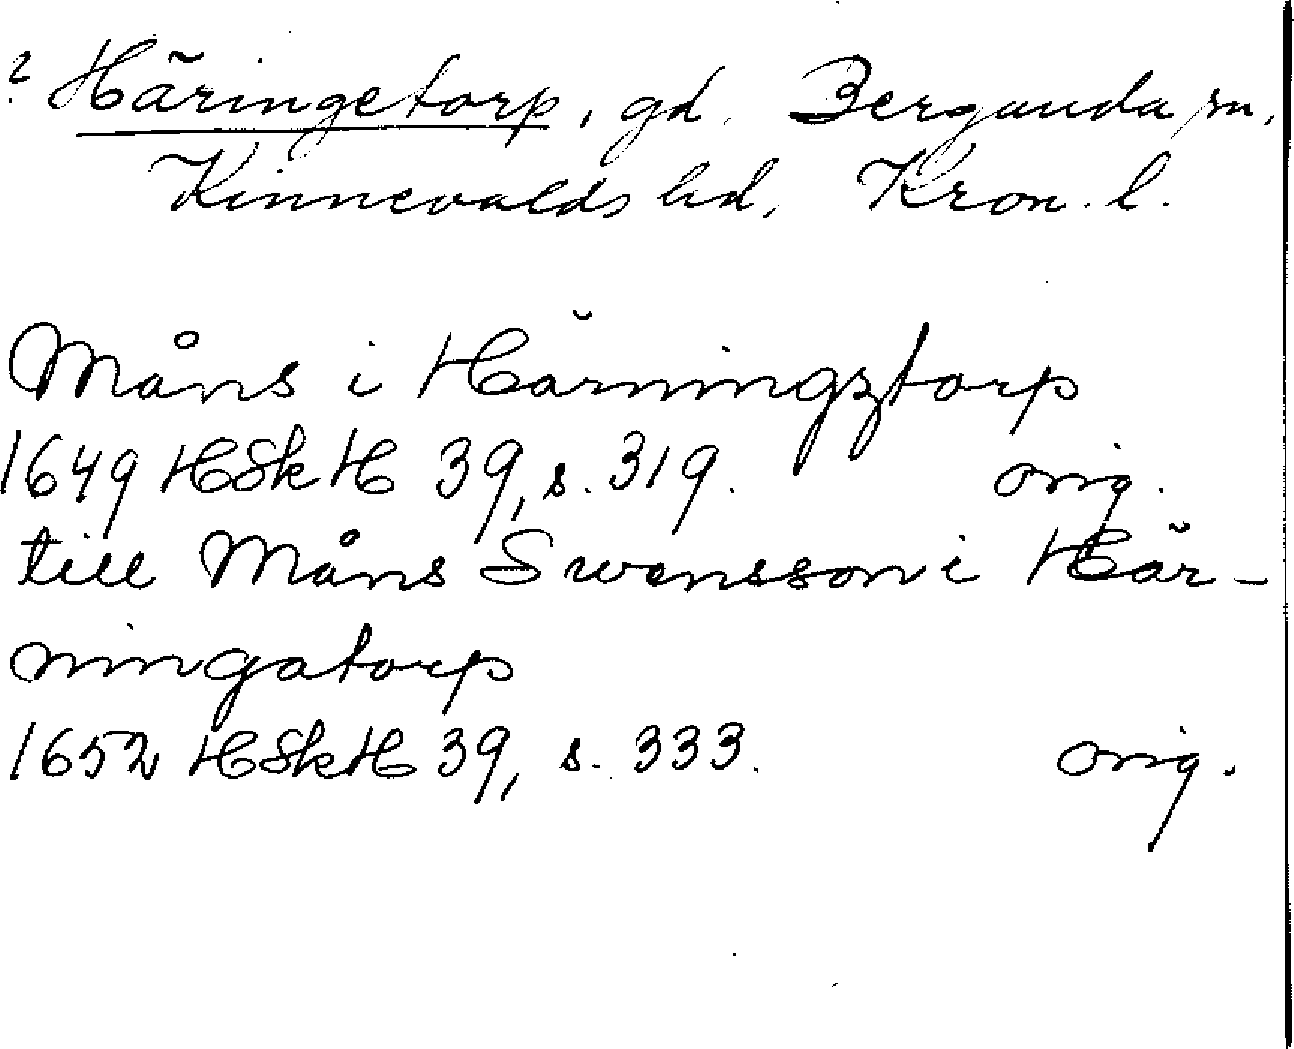 ? Häringetorp, gd, Bergunda sn,
Kinnevalds hd, Kron. l.
Måns i Härningztorp
1649 HSkH 39, s. 319. orig.
till Måns Swensson i Här-
ningatorp
1652 HSkH 39, s. 333. orig.